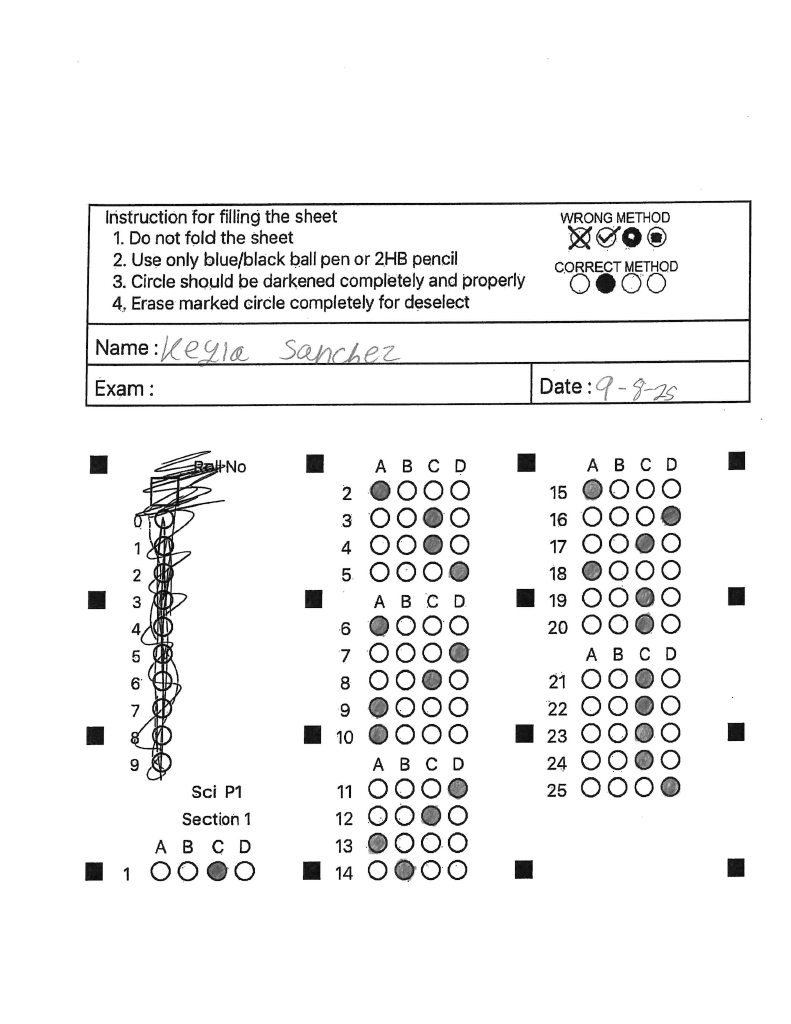 Instruction for filling the sheet
1. Do not fold the sheet
2. Use only blue/black ball pen or 2HB pencil
3. Circle should be darkened completely and properly
4. Erase marked circle completely for deselect
WRONG METHOD
CORRECT METHOD
Name : Keyla Sanchez
Exam :
Date : 9-8-25
Roll No
0
1
2
3
4
5
6
7
8
9
Sci P1
Section 1
A B C D
1
A B C D
2
3
4
5
A B C D
6
7
8
9
10
A B C D
11
12
13
14
A B C D
15
16
17
18
19
20
A B C D
21
22
23
24
25